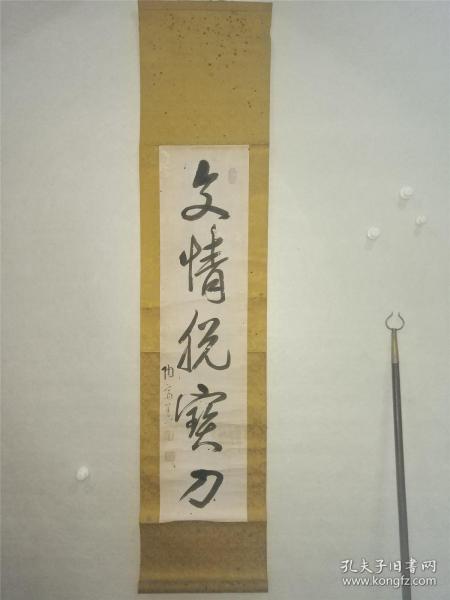 文情脱寶刀
孔夫子旧书网
www.kongfz.com